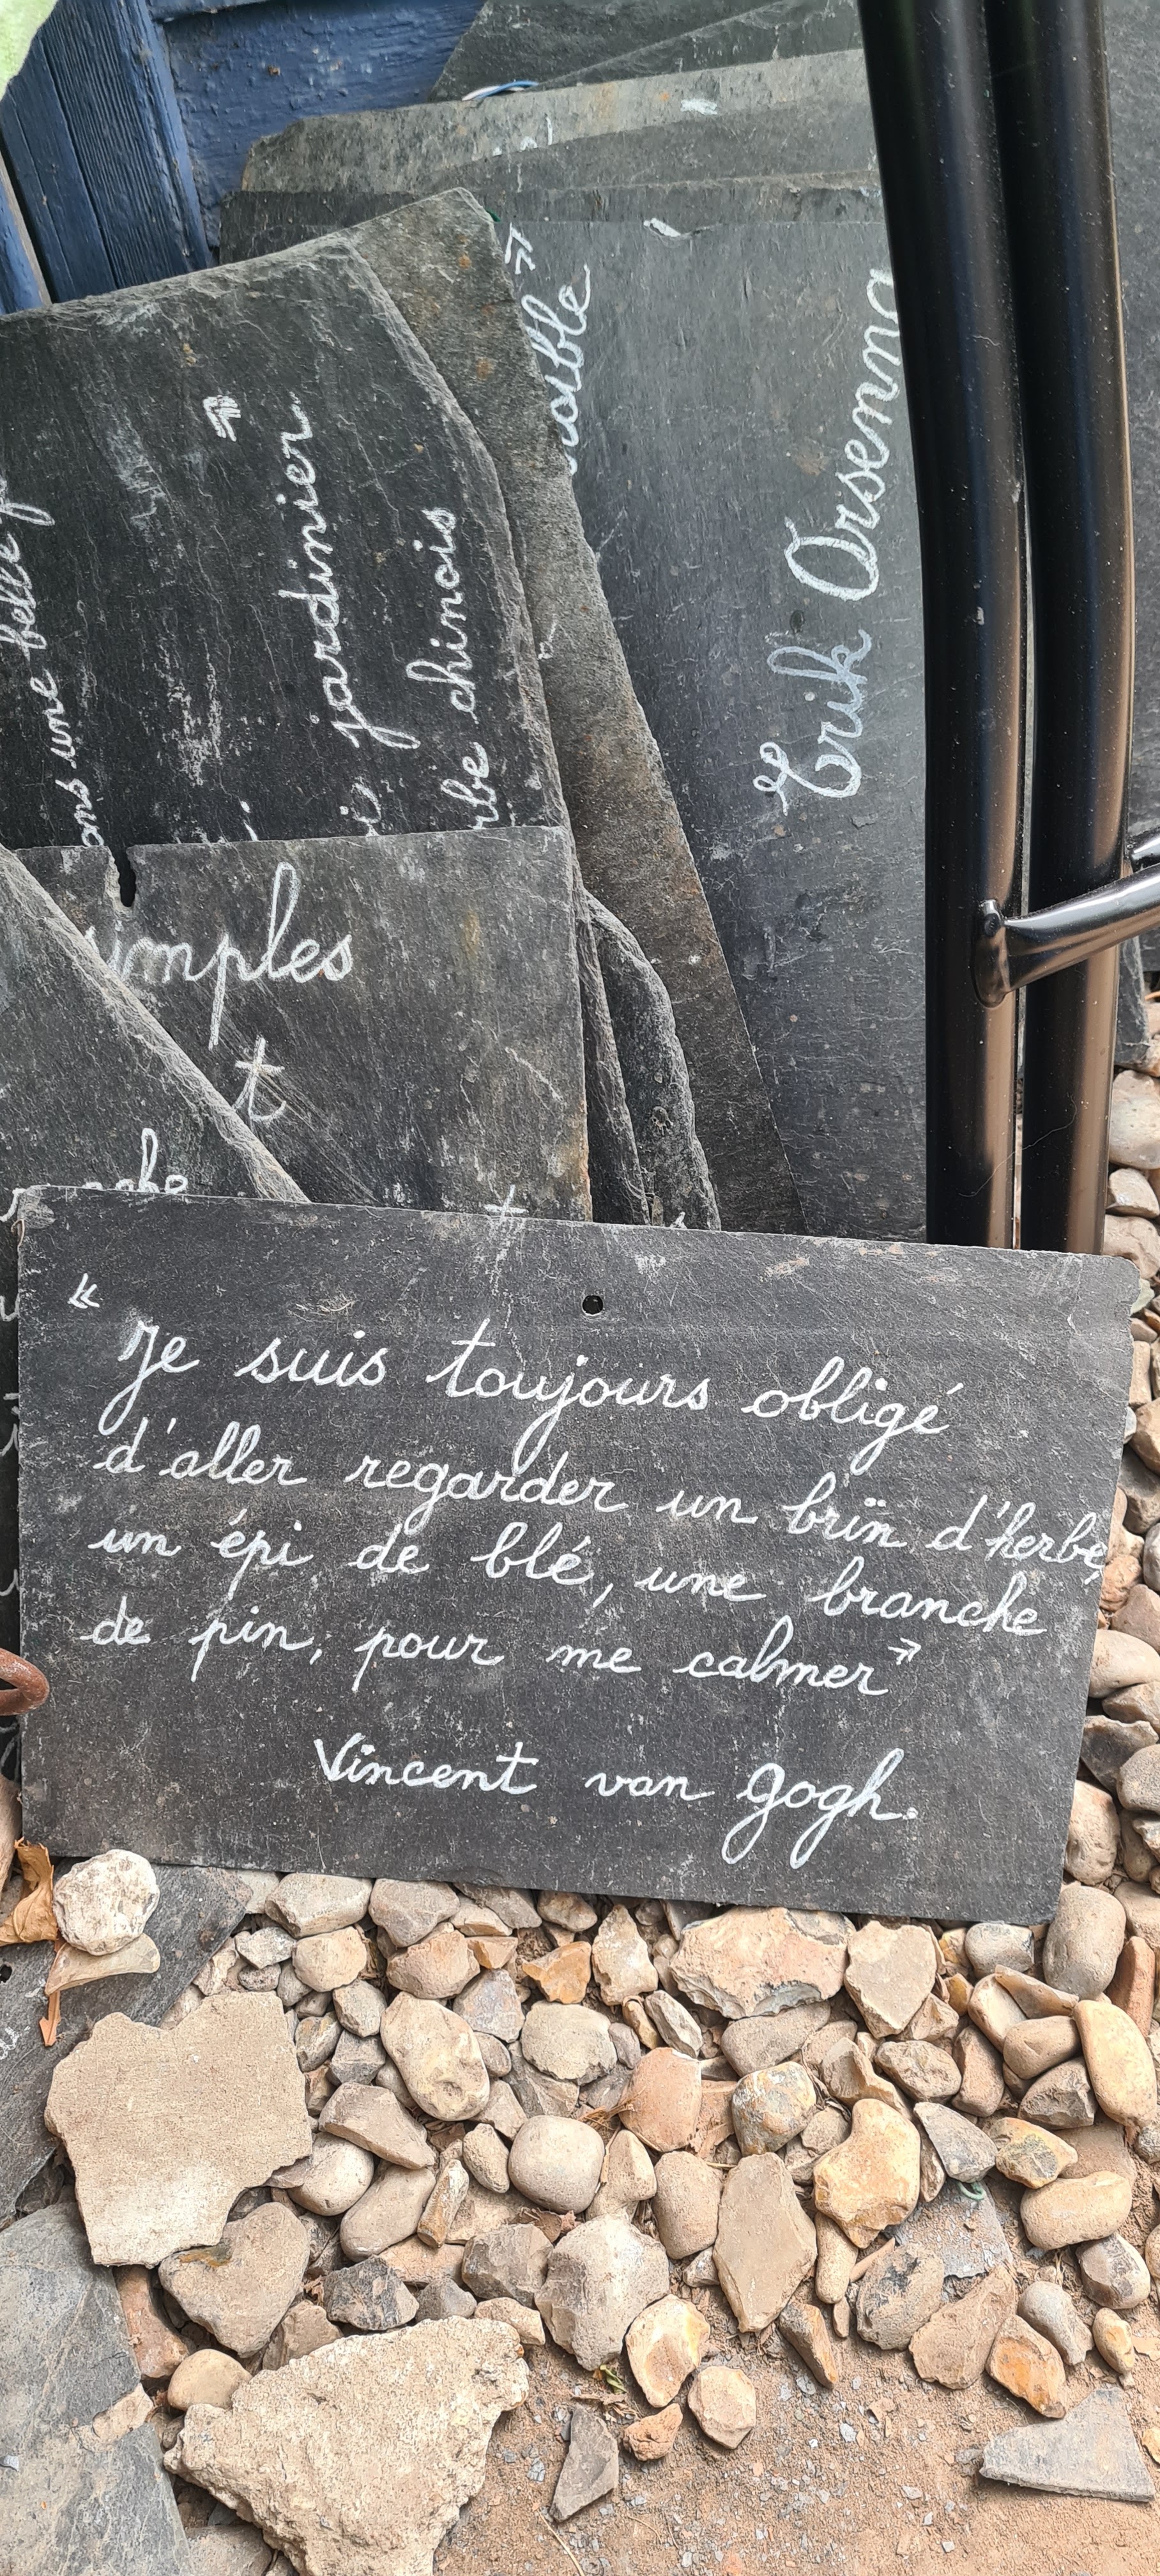 jardinier »
chinois
Erik Orsenna
t
« Je suis toujours obligé
d'aller regarder un brin d'herbe,
un épi de blé, une branche
de pin, pour me calmer »
Vincent van Gogh.